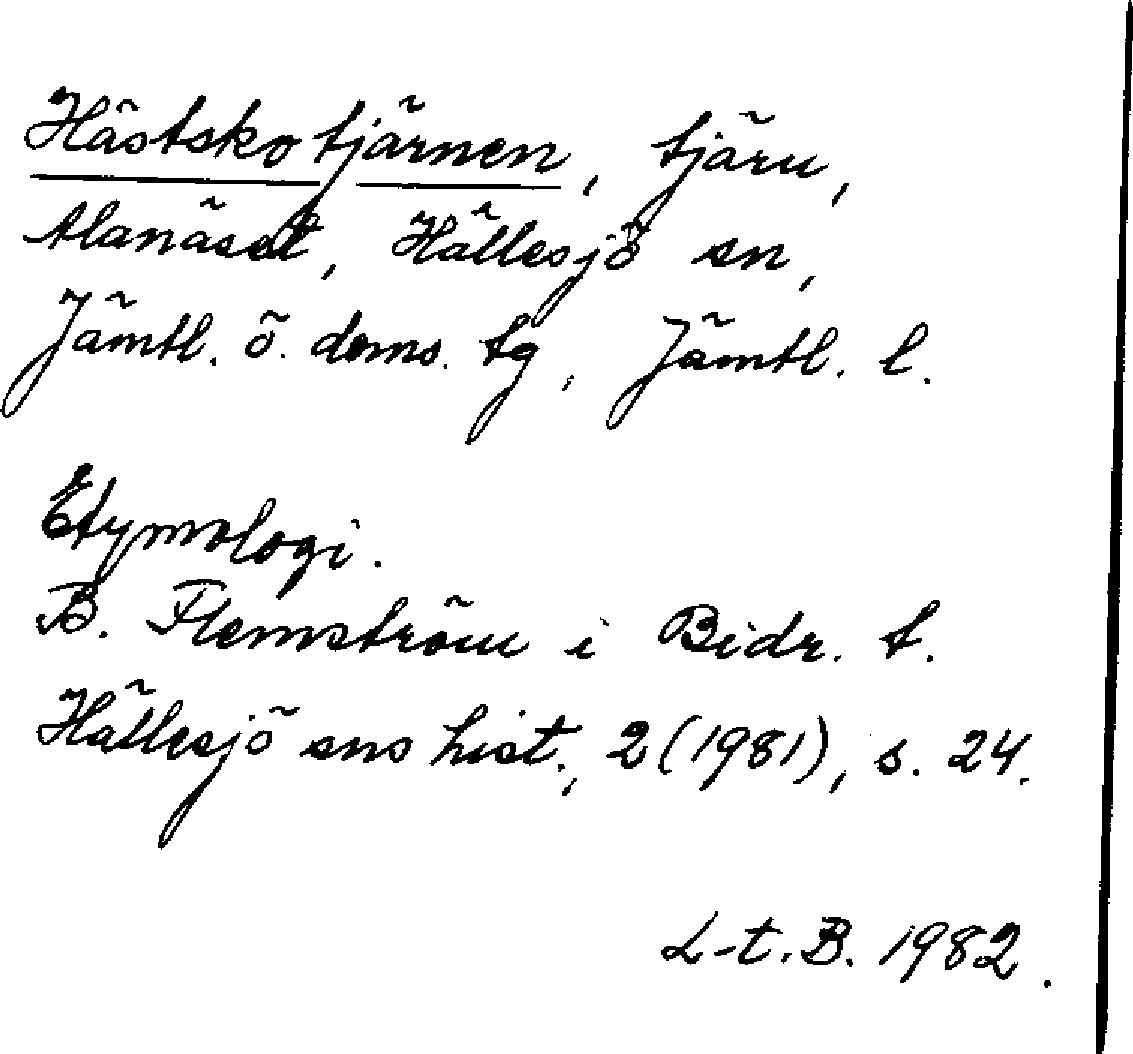 Hästskotjärnen, tjärn,
Alanäset, Hällesjö sn,
Jämtl. ö. doms. tg, Jämtl. l.
Etymologi.
B. Flemström i Bidr. t.
Hällesjö sns hist., 2 (1981), s. 24.
L-t. B. 1982.